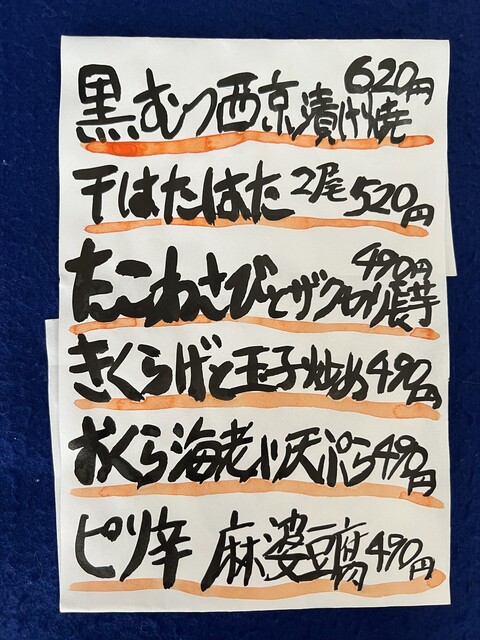 黒むつ西京漬け焼 620円
干はたはた 2尾 520円
たこわさびとザク切り長芋 490円
きくらげと玉子炒め 490円
おくら海老川天ぷら 490円
ピリ辛 麻婆豆腐 490円